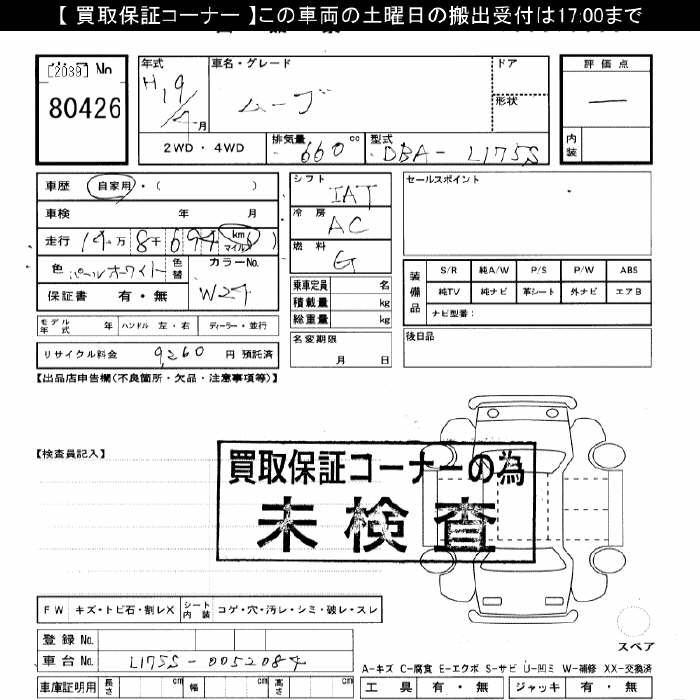 【 買取保証コーナー 】この車両の土曜日の搬出受付は17:00まで
[2039] No
80426
年式
H19/4月
車名・グレード
ムーブ
ドア
形状
評価点
—
内装
2WD・4WD
排気量 660 cc
型式 DBA- L175S
車歴 自家用・( )
車検 年 月
走行 14万8千694 km マイル
色 パールホワイト 色替
カラーNo. W24
保証書 有・無
シフト IAT
冷房 AC
燃料 G
乗車定員 名
積載量 kg
総重量 kg
セールスポイント
装備品
S/R 純A/W P/S P/W ABS
純TV 純ナビ 革シート 外ナビ エアB
ナビ型番:
モデル年式 年 ハンドル 左・右 ディーラー・並行
リサイクル料金 9,260 円 預託済
名変期限
月 日
後日品
【出品店申告欄(不良箇所・欠品・注意事項等)】
【検査員記入】
買取保証コーナーの為
未検査
FW キズ・トビ石・割レX シート内装 コゲ・穴・汚レ・シミ・破レ・スレ
スペア
登録No.
車台No. L175S-0052084
A-キズ C-腐食 E-エクボ S-サビ U-凹ミ W-補修 XX-交換済
車庫証明用 長さ cm 幅 cm 高さ cm
工具 有・無 ジャッキ 有・無